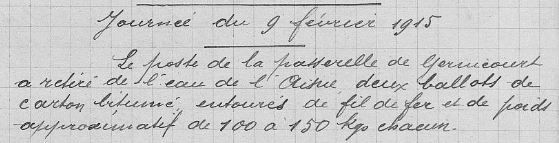 Journée du 9 février 1915
Le poste de la passerelle de Gernicourt
a retiré de l'eau de l'Aisne, deux ballots de
carton bitumé, entourés de fil de fer et de poids
approximatif de 100 à 150 kgs chacun.